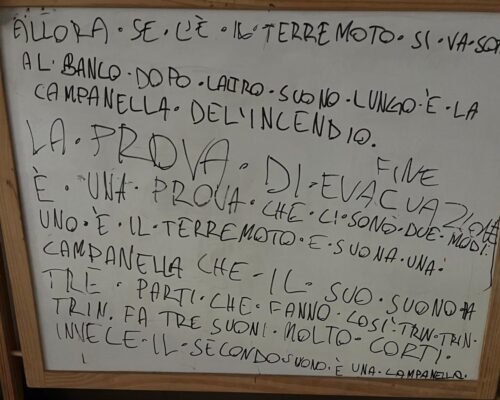 ALLORA · SE · C'È · IL · TERREMOTO · SI · VA · SOT
AL · BANCO · DOPO · LALTRO · SUONO · LUNGO · È · LA
CAMPANELLA · DELL'INCENDIO.
FINE
LA · PROVA · DI · EVACUAZIONE
È · UNA · PROVA · CHE · CI · SONO · DUE · MODI:
UNO · È · IL · TERREMOTO · E · SUONA · UNA ·
CAMPANELLA CHE · IL · SUO · SUONO · A
TRE · PARTI · CHE · FANNO · COSÌ: TRIN · TRIN ·
TRIN. FA TRE SUONI · MOLTO · CORTI.
INVECE · IL · SECONDO SUONO · È UNA · CAMPANELLA.